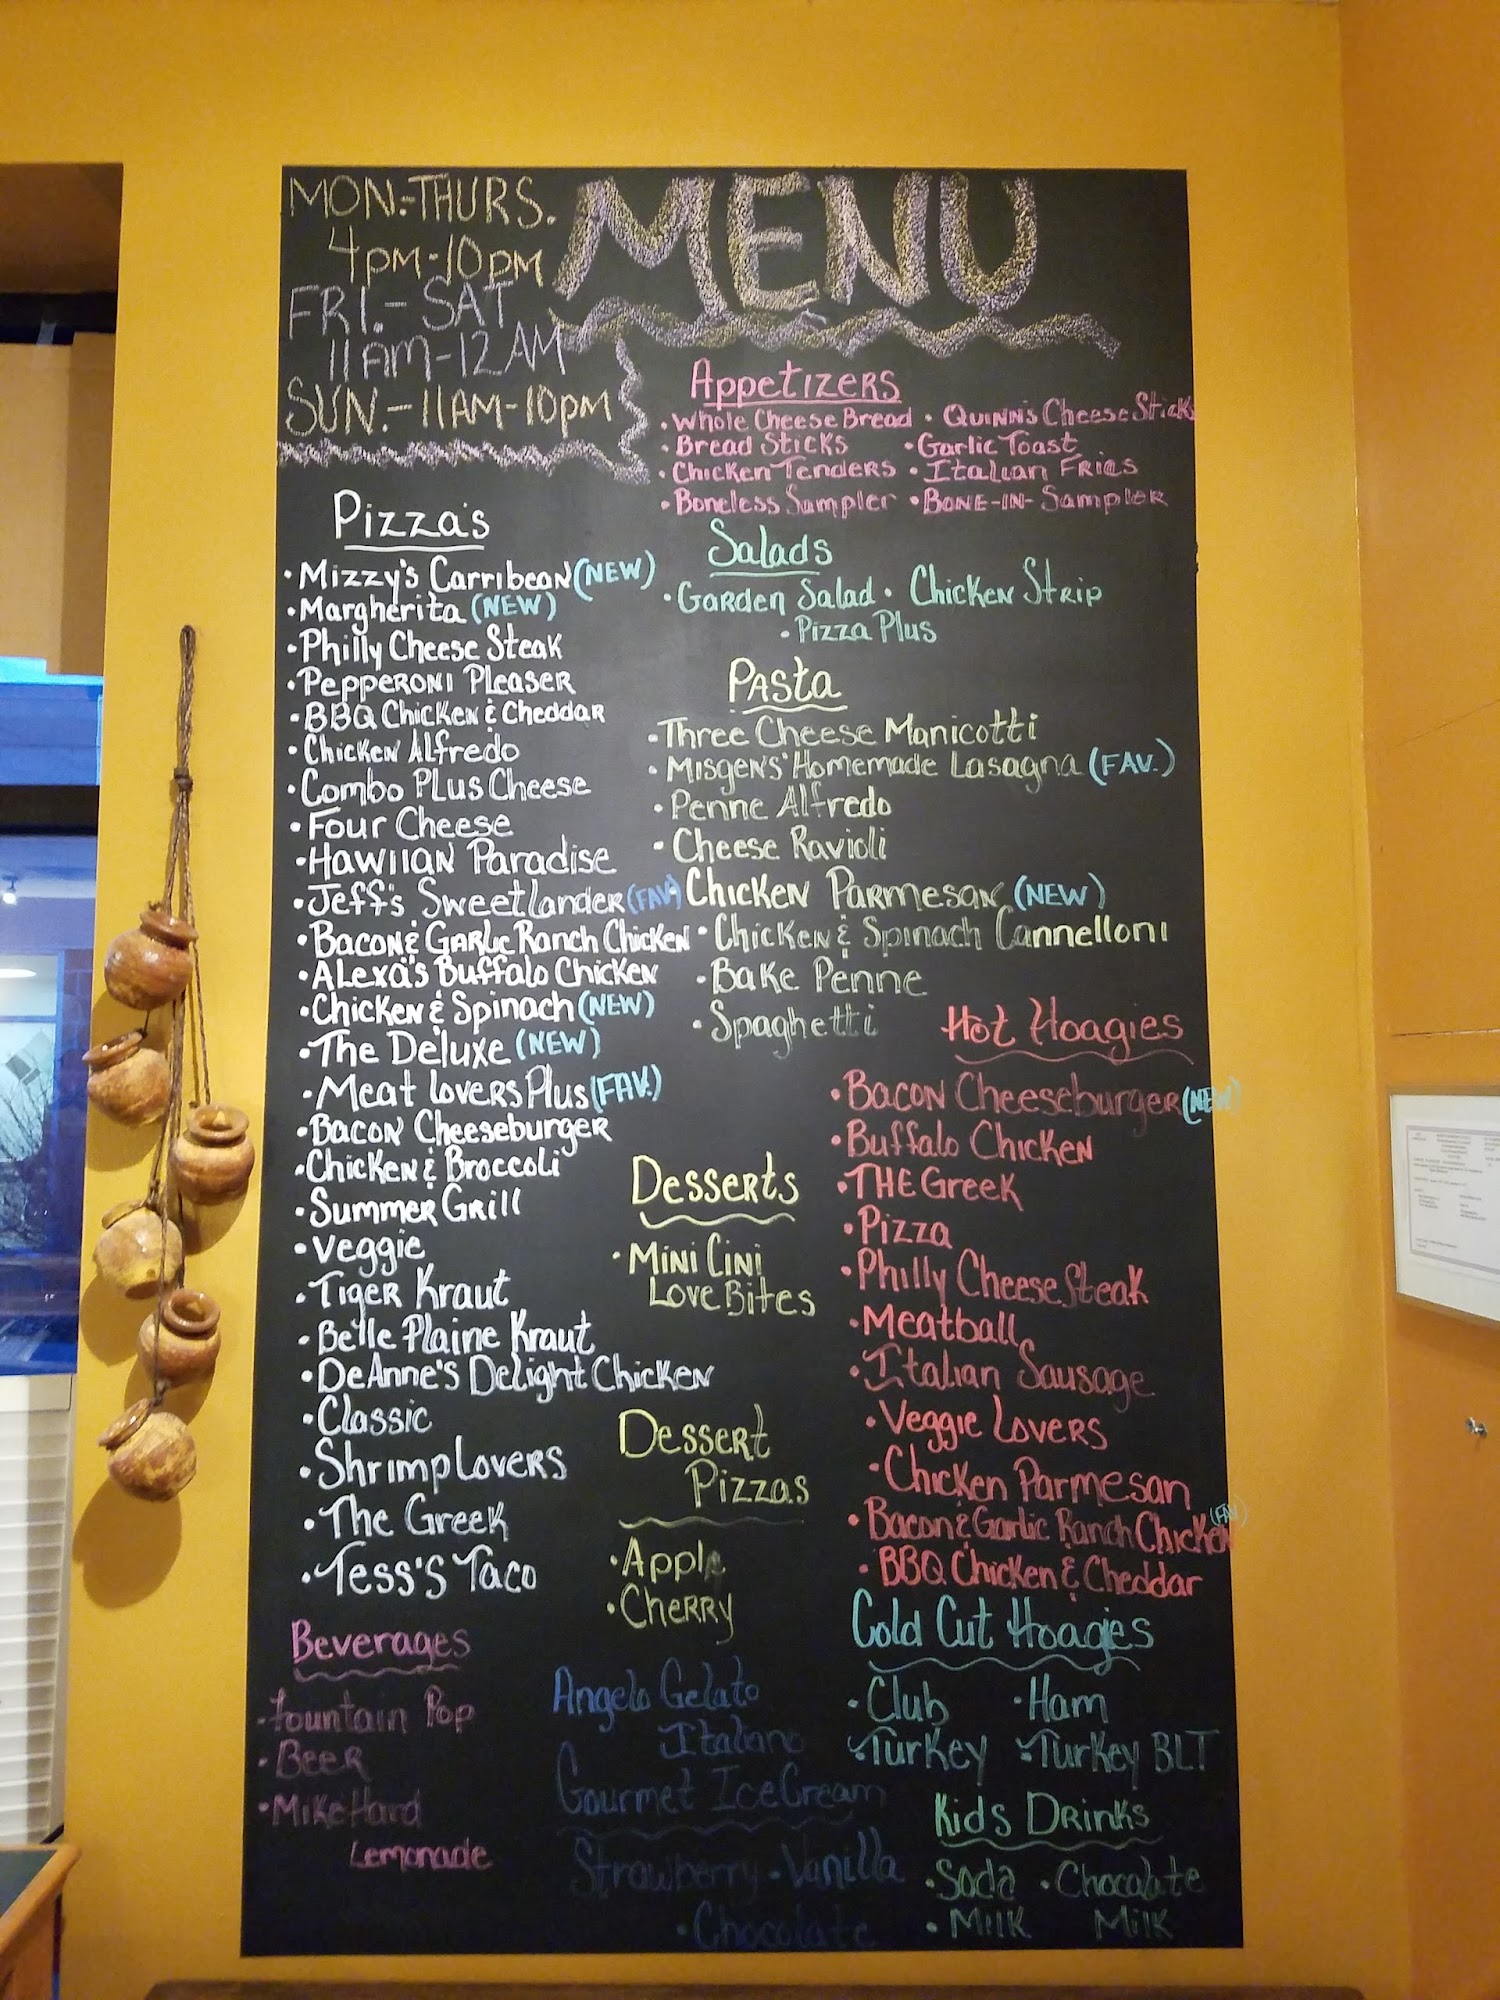 MON.-THURS.
4PM-10PM
FRI.-SAT
11AM-12AM
SUN.-11AM-10PM
MENU
Appetizers
• Whole Cheese Bread • Quinn's Cheese Sticks
• Bread Sticks • Garlic Toast
• Chicken Tenders • Italian Fries
• Boneless Sampler • Bone-in-Sampler
Pizza's
• Mizzy's Carribean (NEW)
• Margherita (NEW)
• Philly Cheese Steak
• Pepperoni Pleaser
• BBQ Chicken & Cheddar
• Chicken Alfredo
• Combo Plus Cheese
• Four Cheese
• Hawiian Paradise
• Jeff's Sweetlander (FAV)
• Bacon & Garlic Ranch Chicken
• Alexa's Buffalo Chicken
• Chicken & Spinach (NEW)
• The Deluxe (NEW)
• Meat Lovers Plus (FAV.)
• Bacon Cheeseburger
• Chicken & Broccoli
• Summer Grill
• Veggie
• Tiger Kraut
• Belle Plaine Kraut
• DeAnne's Delight Chicken
• Classic
• Shrimp Lovers
• The Greek
• Tess's Taco
Salads
• Garden Salad • Chicken Strip
• Pizza Plus
Pasta
• Three Cheese Manicotti
• Misgens' Homemade Lasagna (FAV.)
• Penne Alfredo
• Cheese Ravioli
• Chicken Parmesan (NEW)
• Chicken & Spinach Cannelloni
• Bake Penne
• Spaghetti
Hot Hoagies
• Bacon Cheeseburger (NEW)
• Buffalo Chicken
• The Greek
• Pizza
• Philly Cheese Steak
• Meatball
• Italian Sausage
• Veggie Lovers
• Chicken Parmesan
• Bacon & Garlic Ranch Chicken (FAV)
• BBQ Chicken & Cheddar
Desserts
• Mini Cini
Love Bites
Dessert
Pizzas
• Apple
• Cherry
Cold Cut Hoagies
• Club • Ham
• Turkey • Turkey BLT
Beverages
• Fountain Pop
• Beer
• Mike Hard
Lemonade
Angelo Gelato
Italiano
Gourmet Ice Cream
Strawberry • Vanilla
• Chocolate
Kids Drinks
• Soda • Chocolate
• Milk Milk